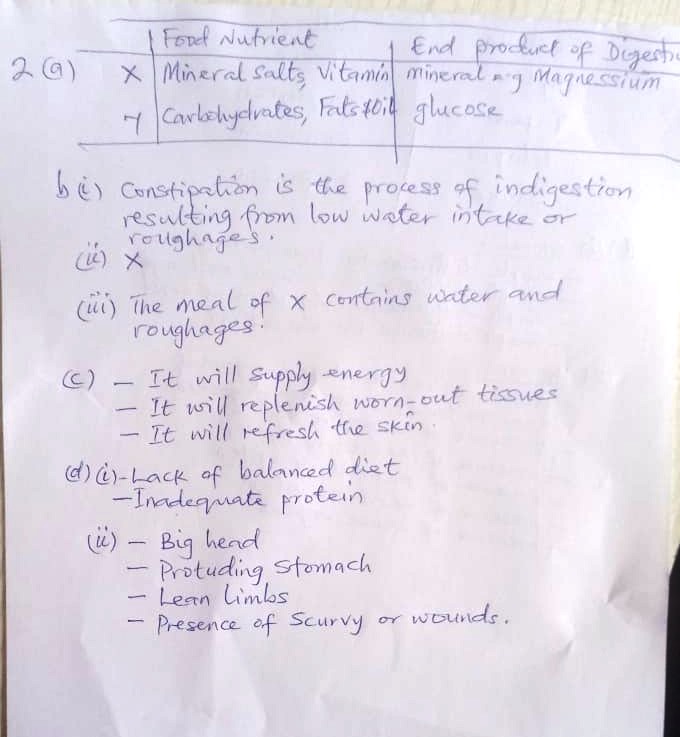 Food Nutrient | End product of Digesti
2(a) X | Mineral salts, Vitamin | mineral e.g Magnessium
Y | Carbohydrates, Fats & oil | glucose
b(i) Constipation is the process of indigestion
resulting from low water intake or
roughages.
(ii) X
(iii) The meal of X contains water and
roughages.
(c) – It will supply energy
– It will replenish worn-out tissues
– It will refresh the skin.
(d)(i) - Lack of balanced diet
– Inadequate protein
(ii) – Big head
– Protuding Stomach
– Lean limbs
– Presence of Scurvy or wounds.